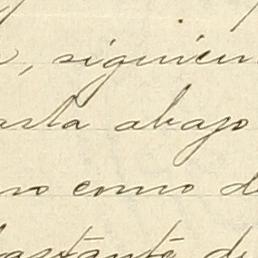 , siguien
asta abajo
no como d
bastante de